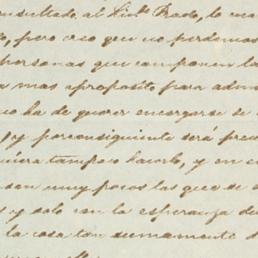 nsultado al Lin.do Prado, lo cua
o, pero creo que no perdemos
personas que componen la
a mas aproposito para adm
no ha de querer encargarse d
, y porconsiguiente será prec
uiera tampoco hacerlo, y en c
sen muy pocos las que se
s y solo con la esperanza de
la cosa tan sumamente d